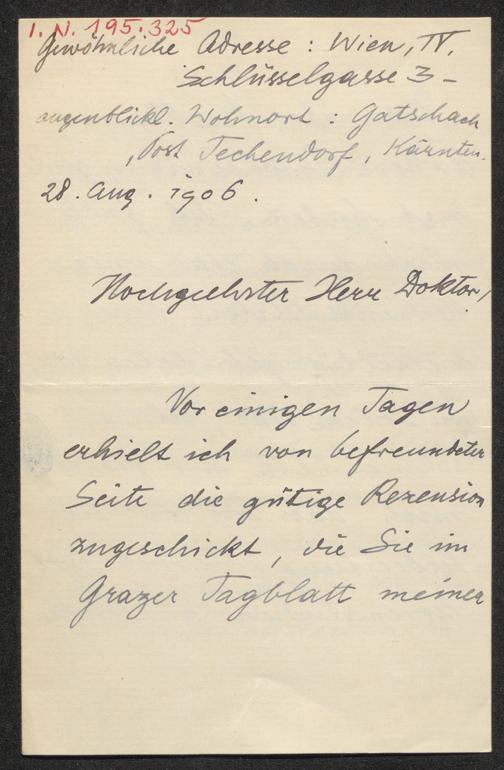 I. N. 195.325
Gewöhnliche Adresse : Wien, IV.
Schlüsselgasse 3 –
augenblickl. Wohnort : Gatschach
, Post Techendorf, Kärnten.
28. Aug. 1906.
Hochgeehrter Herr Doktor,
Vor einigen Tagen
erhielt ich von befreundeter
Seite die gütige Rezension
zugeschickt, die Sie im
Grazer Tagblatt meiner